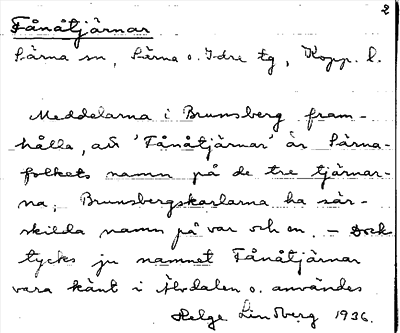 2
Fånåtjärnar
Särna sn, Särna o. Idre tg, Kopp. l.
Meddelarna i Brunsberg fram-
hålla, att 'Fånåtjärnar' är Särna-
folkets namn på de tre tjärnar-
na; Brunsbergskarlarna ha sär-
skilda namn på var och en. – Dock
tycks ju namnet Fånåtjärnar
vara känt i Älvdalen o. användes
Helge Lindberg 1936.